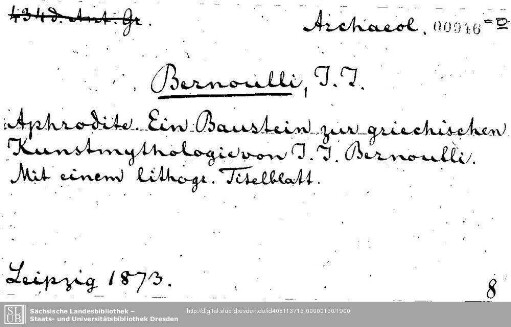 434d. Ant. Gr. Archaeol. 00946 = D
Bernoulli, J. J.
Aphrodite. Ein Baustein zur griechischen
Kunstmythologie von J. J. Bernoulli.
Mit einem lithogr. Titelblatt.
Leipzig 1873. 8
SLUB
Sächsische Landesbibliothek –
Staats- und Universitätsbibliothek Dresden